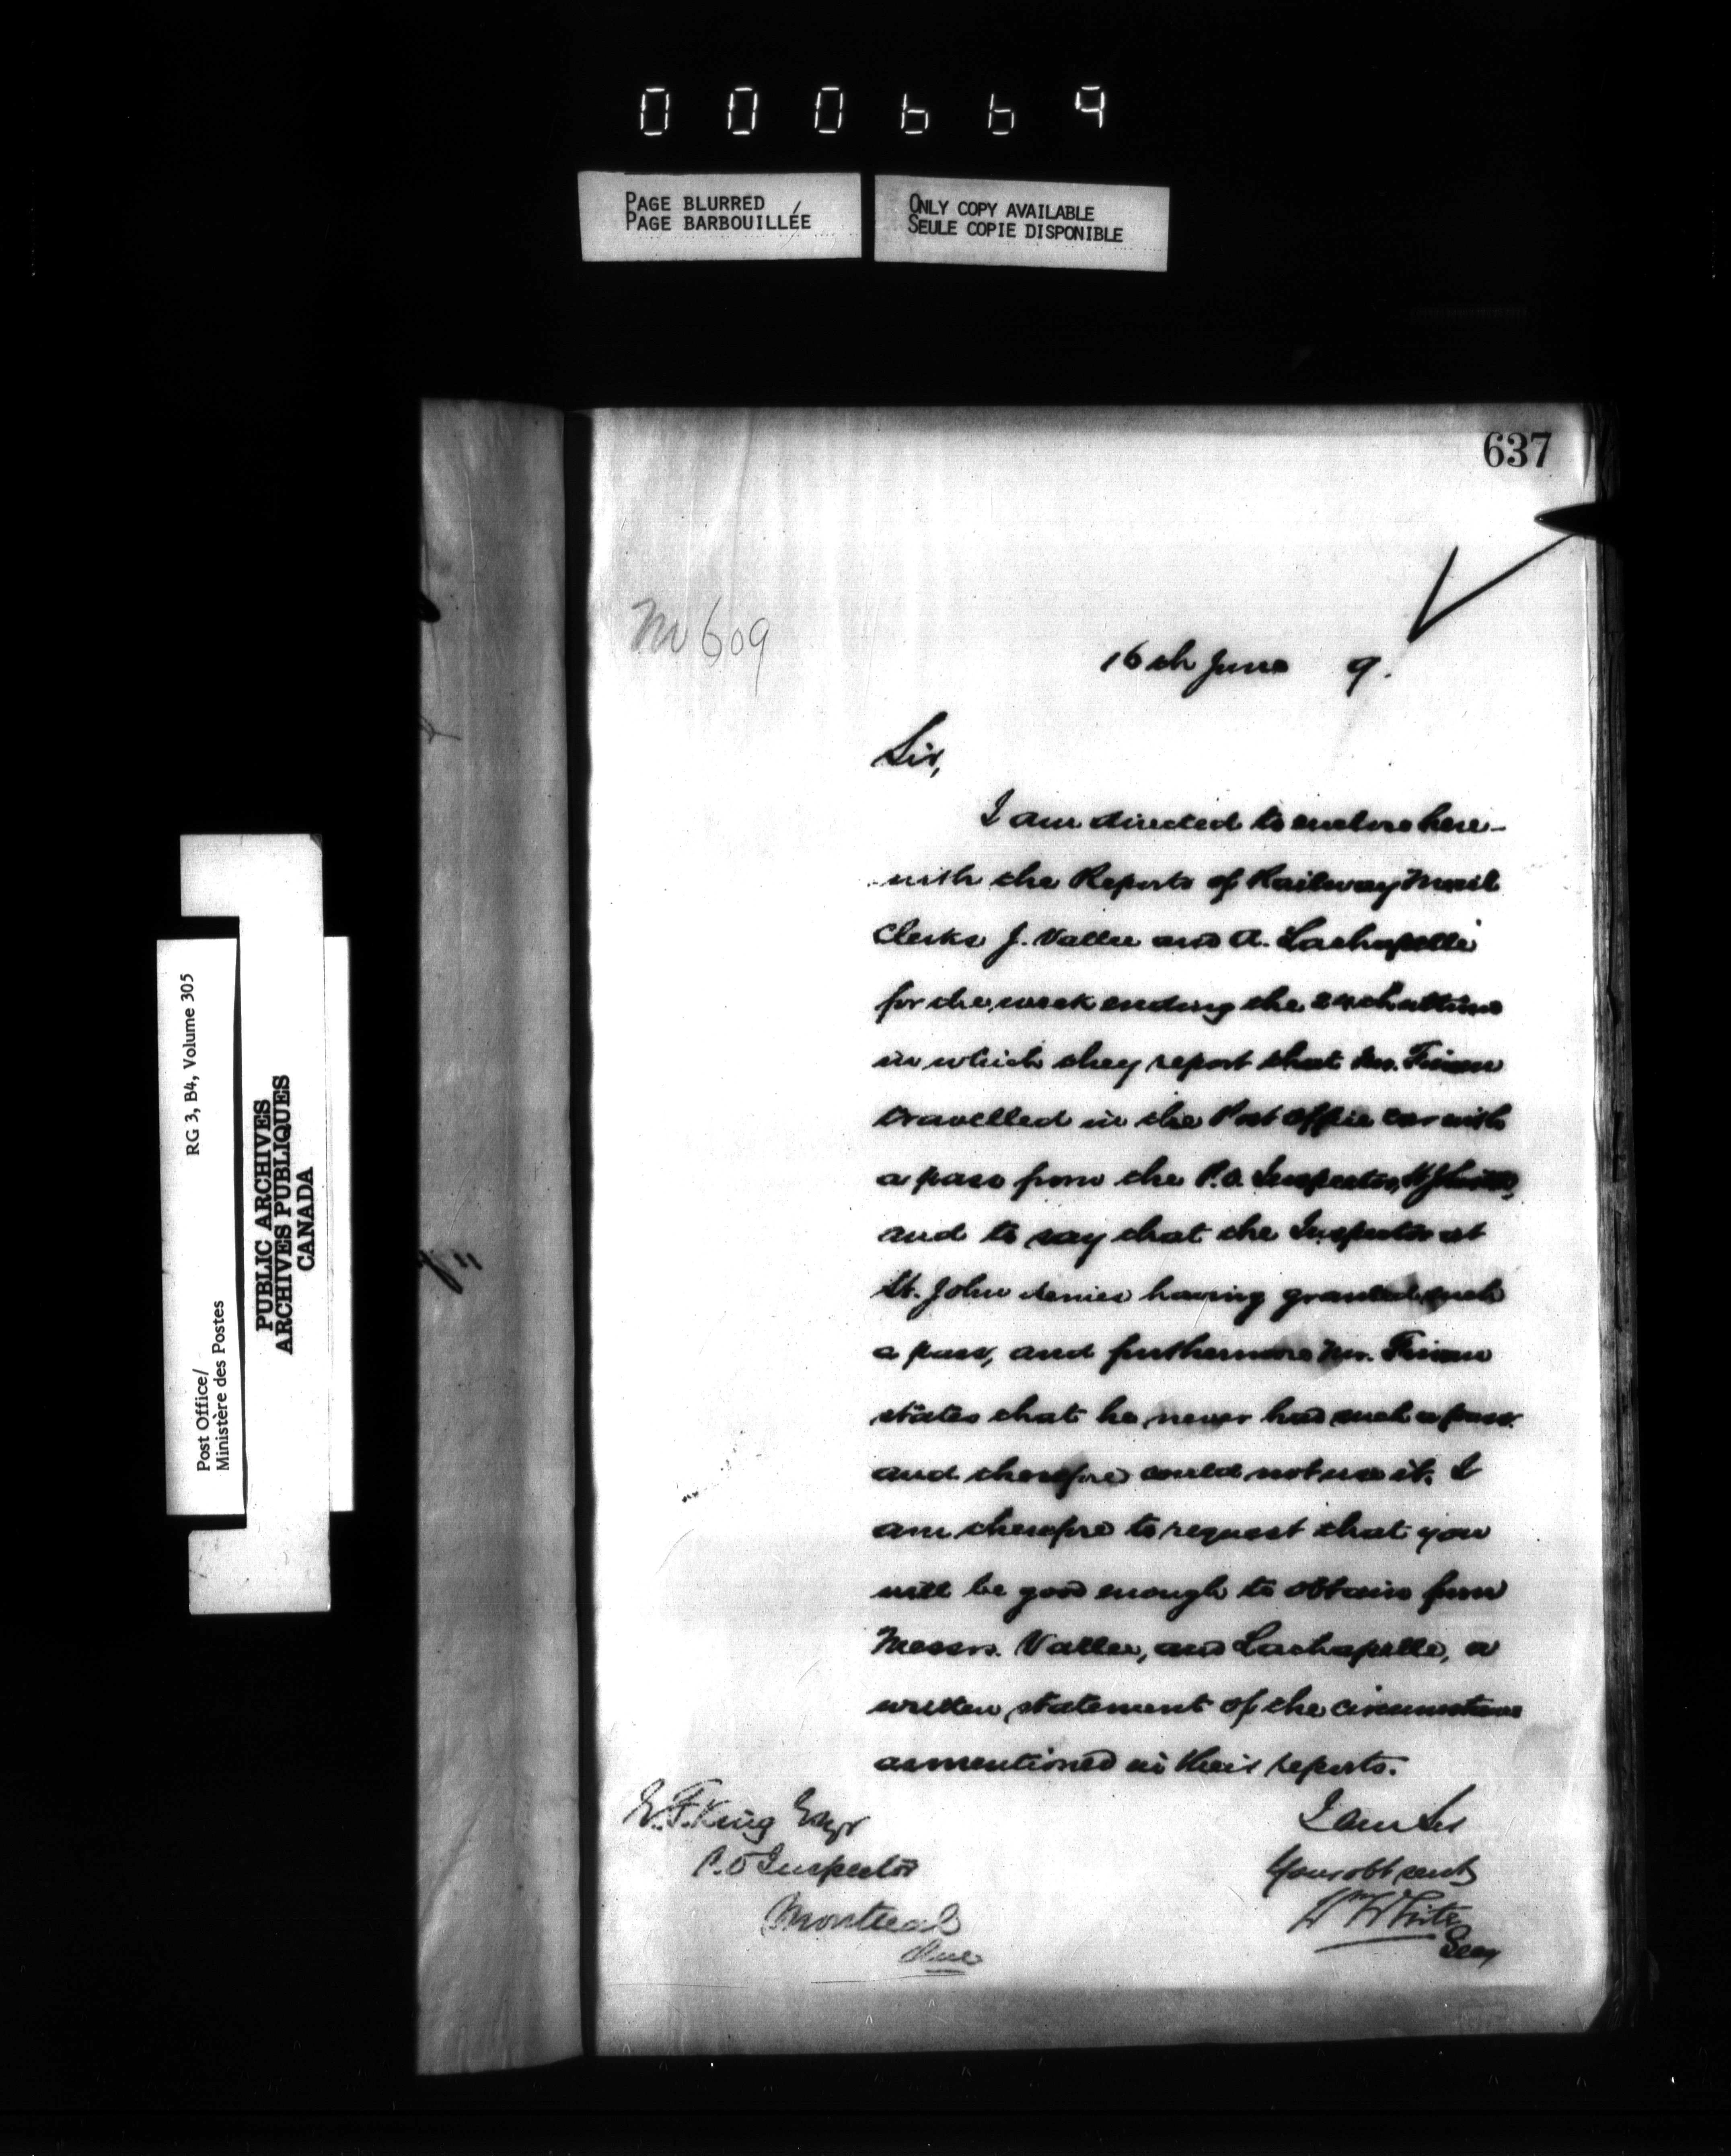 000669
PAGE BLURRED
PAGE BARBOUILLÉE
ONLY COPY AVAILABLE
SEULE COPIE DISPONIBLE
637
M 609
16th June 9.
Sir,
I am directed to enclose here-
with the Reports of Railway Mail
Clerks J. Vallee and A. Lachapelle
for the week ending the 24th ultimo
in which they report that Mr.
travelled in the Post Office car with
a pass from the P.O. Inspector, St John,
and to say that the Inspector at
St. John denies having granted such
a pass, and furthermore Mr.
states that he never had such a pass
and therefore could not use it. I
am therefore to request that you
will be good enough to obtain from
Messrs. Vallee, and Lachapelle, a
written statement of the circumstances
as mentioned in their reports.
I am Sir
Your obt servt
Wm White
Secy
E.F. King Esqr
P.O Inspector
Montreal
Que
Post Office/
Ministère des Postes
RG 3, B4, Volume 305
PUBLIC ARCHIVES
ARCHIVES PUBLIQUES
CANADA